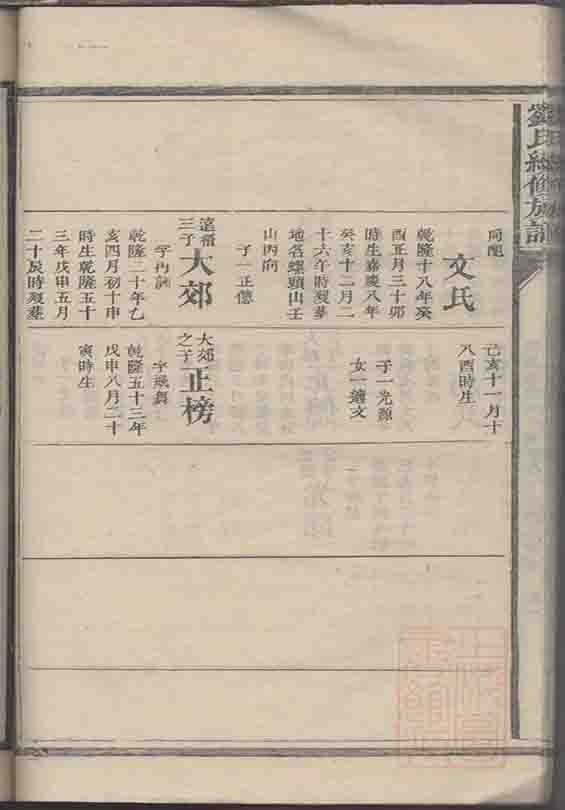 劉氏總修族譜
同配
文氏
乾隆十八年癸
酉正月三十卯
時生嘉慶八年
癸亥十二月二
十六午時歿墓
地名螺頭山壬
山丙向
子一正億
遠
三子
大郊
字
乾隆二十年乙
亥四月初十申
時生乾隆五十
三年戊申五月
二十辰時歿墓
己亥十一月十
八酉時生
子一光源
女一適文
大郊
之子
正榜
字
乾隆五十三年
戊申八月二十
寅時生